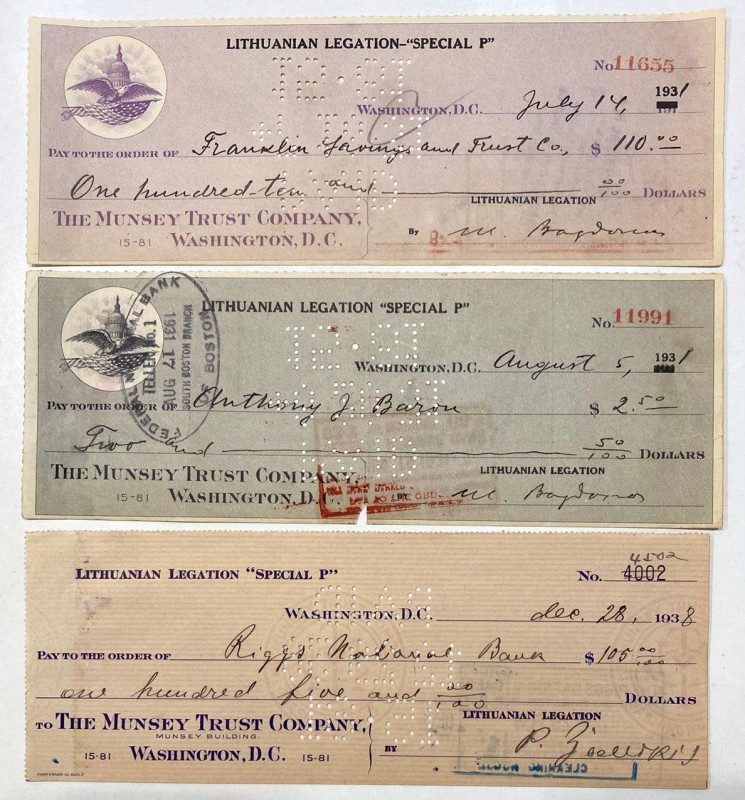 LITHUANIAN LEGATION-"SPECIAL P"
No 11655
WASHINGTON, D.C. July 14, 1931
PAY TO THE ORDER OF Franklin Savings and Trust Co., $ 110.00
One hundred-ten and 00/100 DOLLARS
LITHUANIAN LEGATION
THE MUNSEY TRUST COMPANY,
15-81 WASHINGTON, D.C.
BY M. Bagdonas
LITHUANIAN LEGATION "SPECIAL P"
No. 11991
WASHINGTON, D.C. August 5, 1931
PAY TO THE ORDER OF Anthony J. Baron $ 2.50
Two and 50/100 DOLLARS
LITHUANIAN LEGATION
THE MUNSEY TRUST COMPANY,
15-81 WASHINGTON, D.C.
M. Bagdonas
FEDERAL NATIONAL BANK OF BOSTON
TELLER NO. 1
1931 AUG 17
SOUTH BOSTON BRANCH
4502
LITHUANIAN LEGATION "SPECIAL P" No. 4002
WASHINGTON, D.C. Dec. 28, 1938
PAY TO THE ORDER OF Riggs National Bank $ 105 00/100
one hundred five and 00/100 DOLLARS
LITHUANIAN LEGATION
TO THE MUNSEY TRUST COMPANY,
MUNSEY BUILDING
15-81 WASHINGTON, D.C. 15-81
BY P.
CLEARING HOUSE